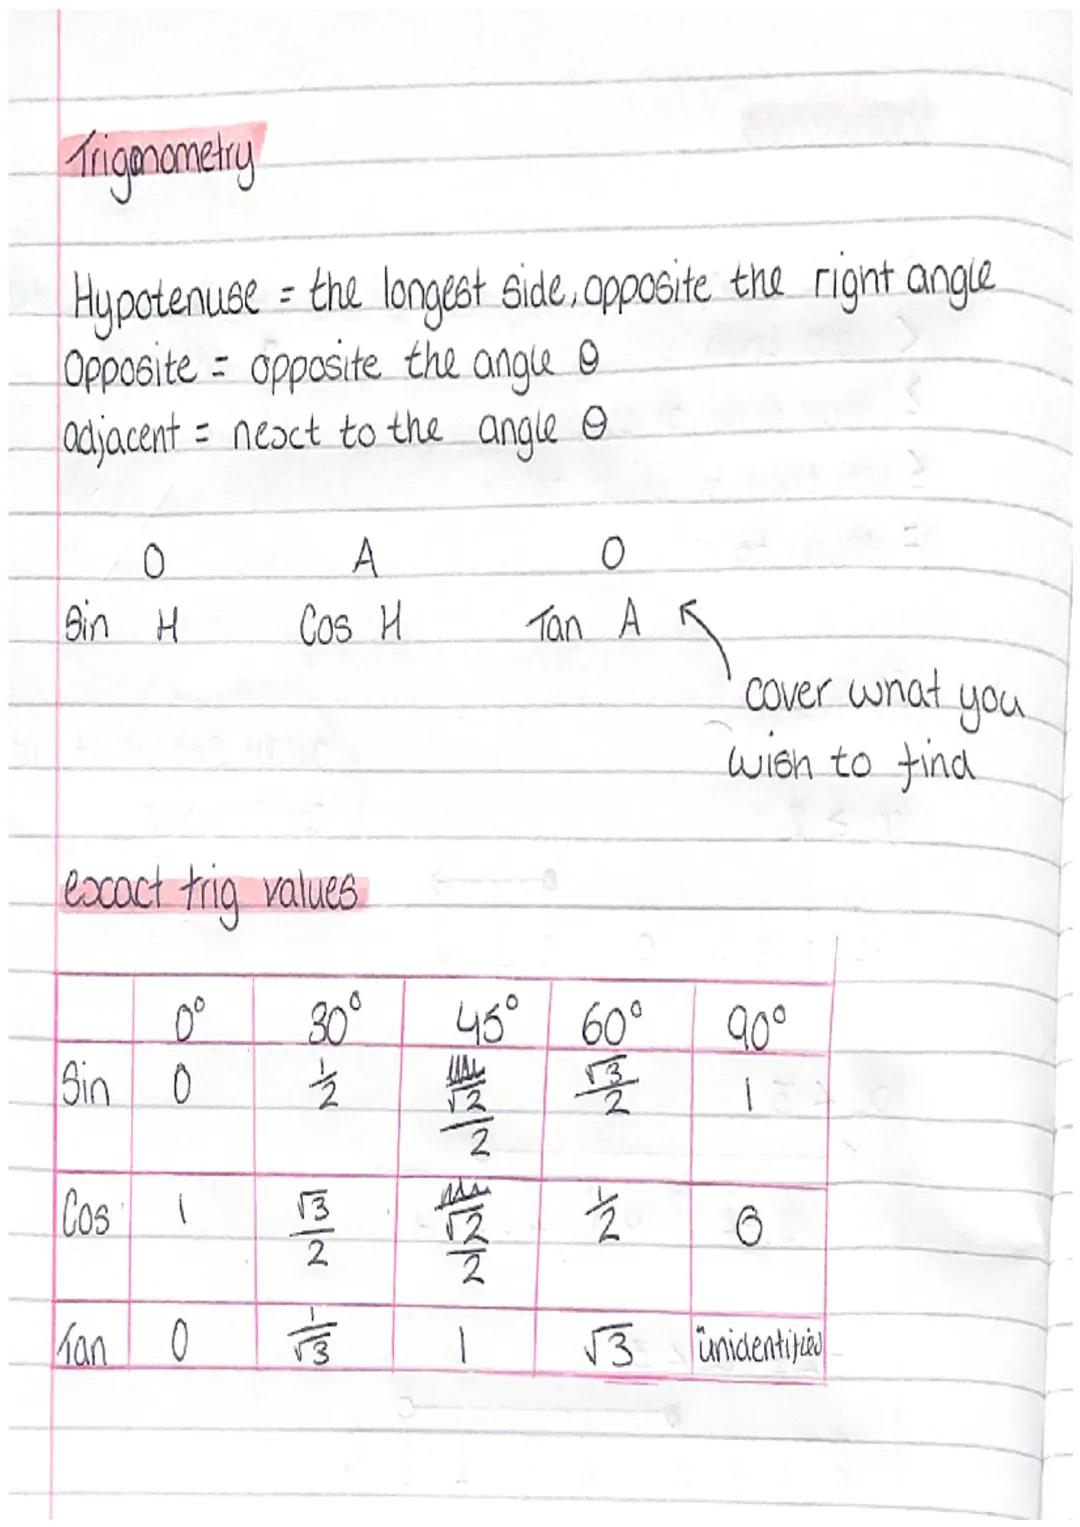 Trigonometry
Hypotenuse = the longest side, opposite the right angle
Opposite = opposite the angle θ
adjacent = next to the angle θ
O A O
Sin H Cos H Tan A
cover what you
wish to find
exact trig values
0° 30° 45° 60° 90°
Sin 0 1/2 √2/2 √3/2 1
Cos 1 √3/2 √2/2 1/2 0
Tan 0 1/√3 1 √3 "unidentified